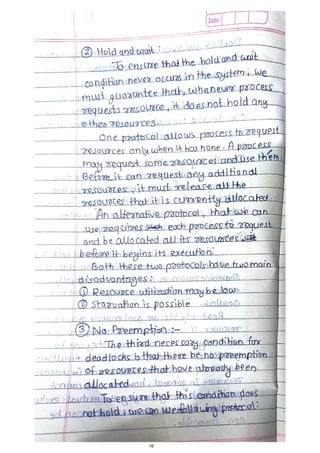 Date
② Hold and wait :
To ensure that the hold and wait
condition never occurs in the system, we
must guarantee that, whenever process
requests resource, it does not hold any
other resources.
One protocol allows process to request
resources only when it has none. A process
may request some resources and use them
Before it can request any additional
resources, it must release all the
resources that it is currently allocated.
An alternative protocol, that we can
use requires each process to request
and be allocated all its resources
before it begins its execution.
Both these two protocols have two main
disadvantages :
① Resource utilization may be low
② Starvation is possible
③ No Preemption :-
The third necessary condition for
deadlocks is that there be no preemption
of resources that have already been
allocated
To ensure that this condition does
not hold, we can use following protocol: